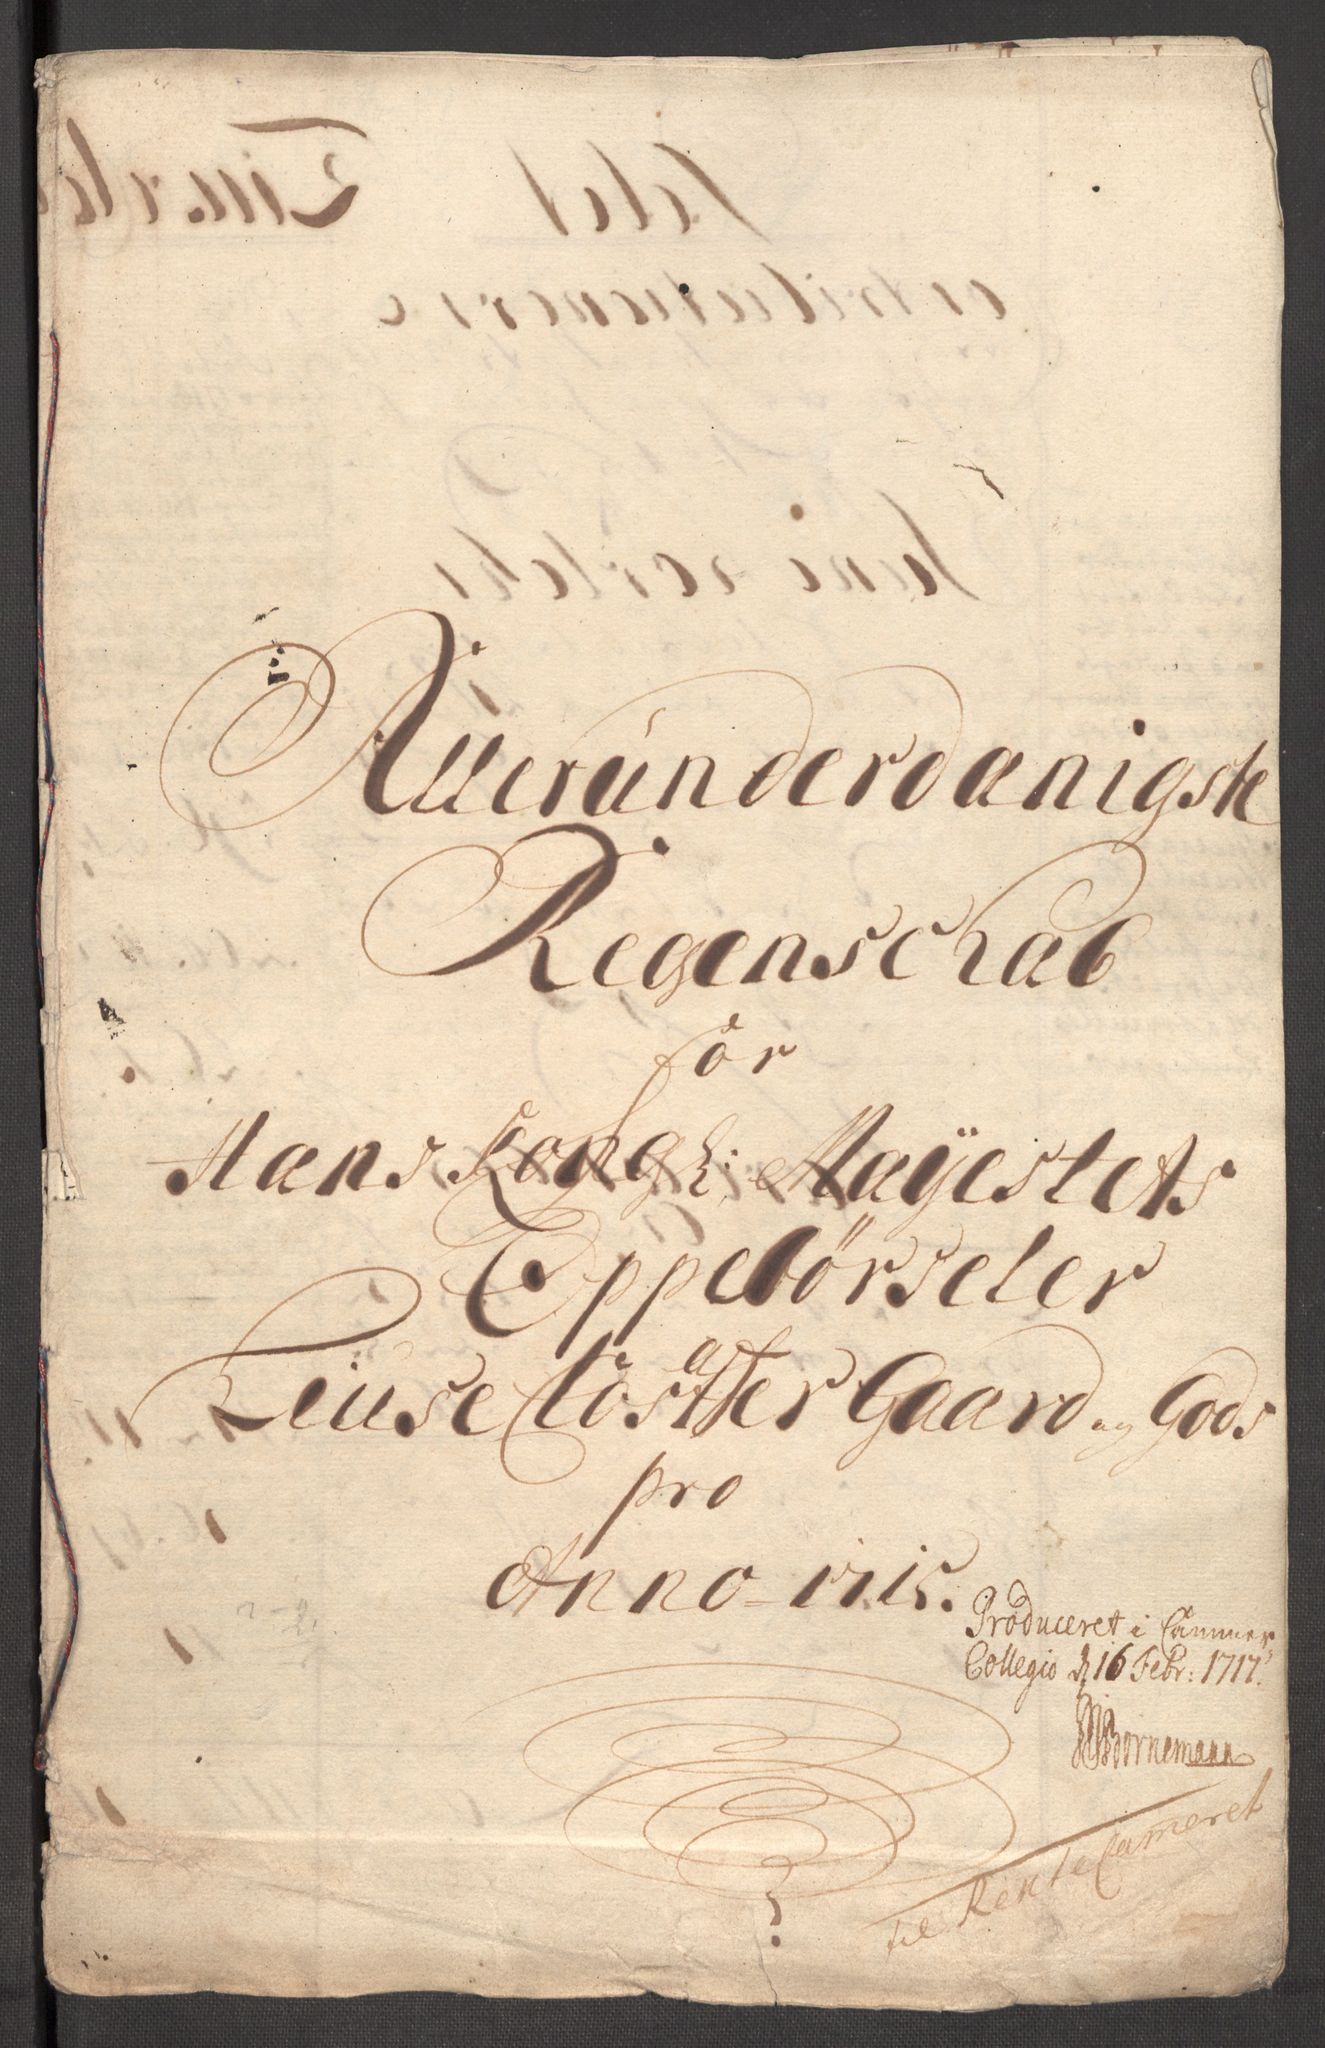 Alleründerdanigste
Regenschab
for
Hans Kongl: Mayestets
Oppebörseler
Liuse Closter Gaard og Gods
pro
Anno 1715.
Produceret i Cammer
Collegio d 16 Febr: 1717.
Bornemann
til RenteCameret